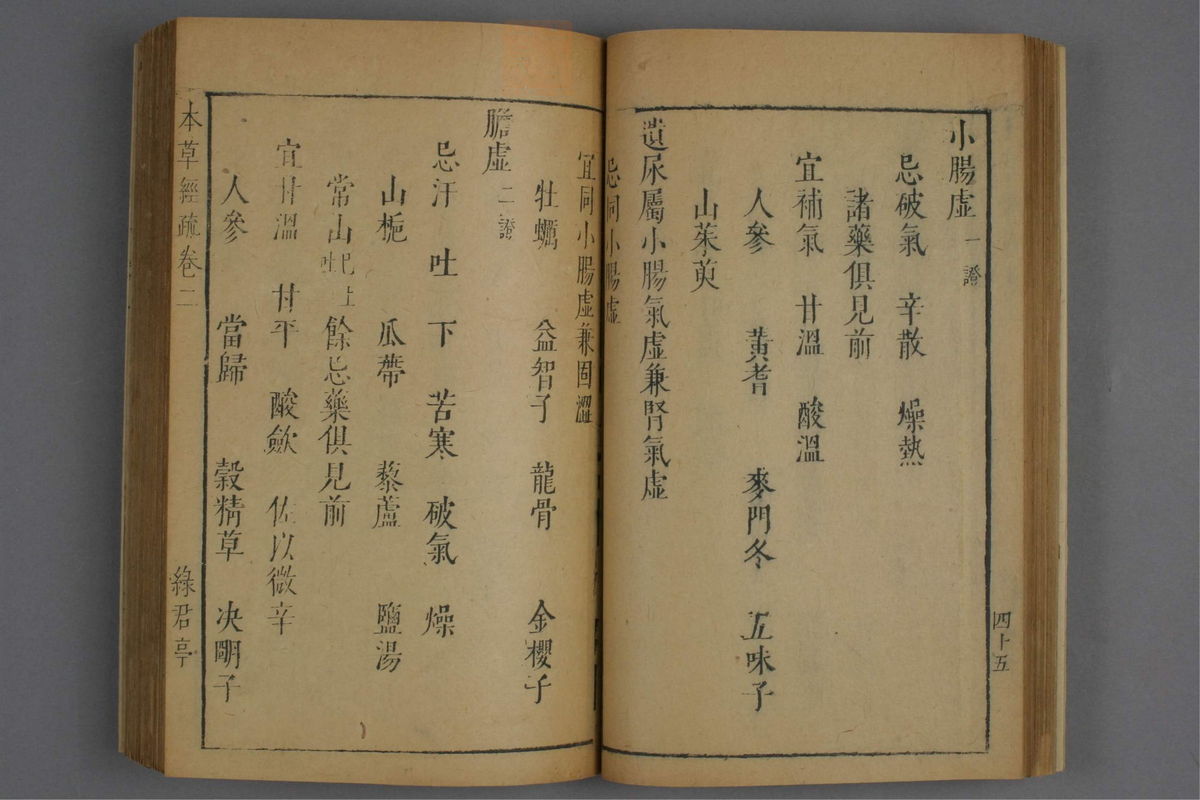 四十五
小腸虛一證
忌破氣 辛散 燥熱
諸藥俱見前
宜補氣 甘溫 酸溫
人參 黃耆 麥門冬 五味子
山茱萸
遺尿屬小腸氣虛兼腎氣虛
忌同小腸虛
宜同小腸虛兼固澀
牡蠣 益智子 龍骨 金櫻子
膽虛二證
忌汗 吐 下 苦寒 破氣 燥
山梔 瓜蔕 藜蘆 鹽湯
常山 餘忌藥俱見前
宜甘溫 甘平 酸歛 佐以微辛
人參 當歸 穀精草 决明子
本草經疏卷二 綠君亭